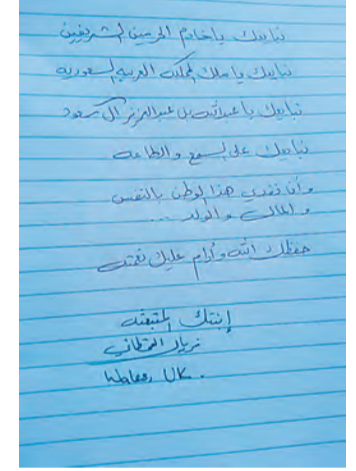 نبايعك ياخادم الحرمين الشريفين
نبايعك يا ملك المملكه العربيه السعوديه
نبايعك يا عبدالله بن عبدالعزيز آل سعود
نبايعك على السمع والطاعه
وأن نفدي هذا الوطن بالنفس
والمال والولد...
حفظك الله وأدام عليك نعمته
إبنتك المبتعثه
القحطاني
UK